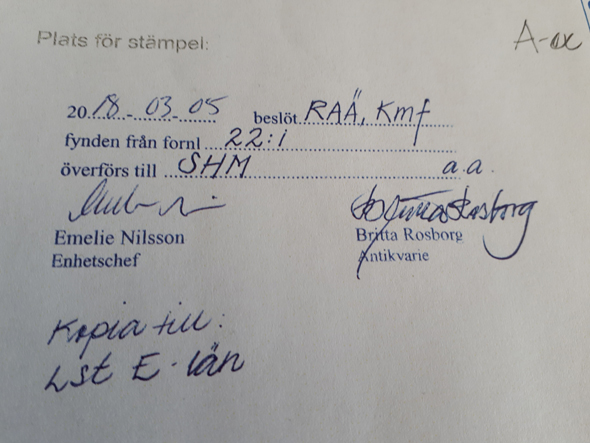 Plats för stämpel:
A-ex
2018-03-05 beslöt RAÄ, Kmf
fynden från fornl 22:1
överförs till SHM a.a.
Emelie Nilsson Britta Rosborg
Enhetschef Antikvarie
Kopia till:
Lst E-län